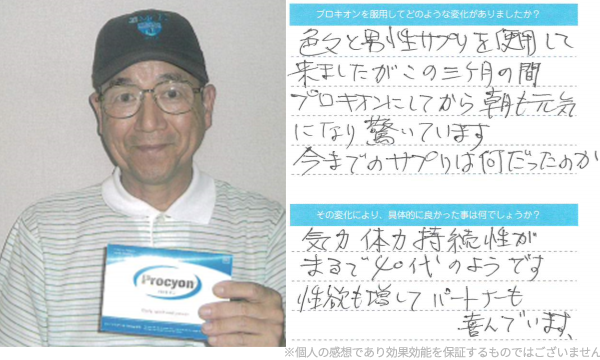 Procyon
プロキオンを服用してどのような変化がありましたか？
色々と男性サプリを使用して
来ましたがこの三ケ月の間
プロキオンにしてから朝も元気
になり驚いています
今までのサプリは何だったのか
その変化により、具体的に良かった事は何でしょうか？
気力体力持続性が
まるで40代のようです
性欲も増してパートナーも
喜んでいます、
※個人の感想であり効果効能を保証するものではございません